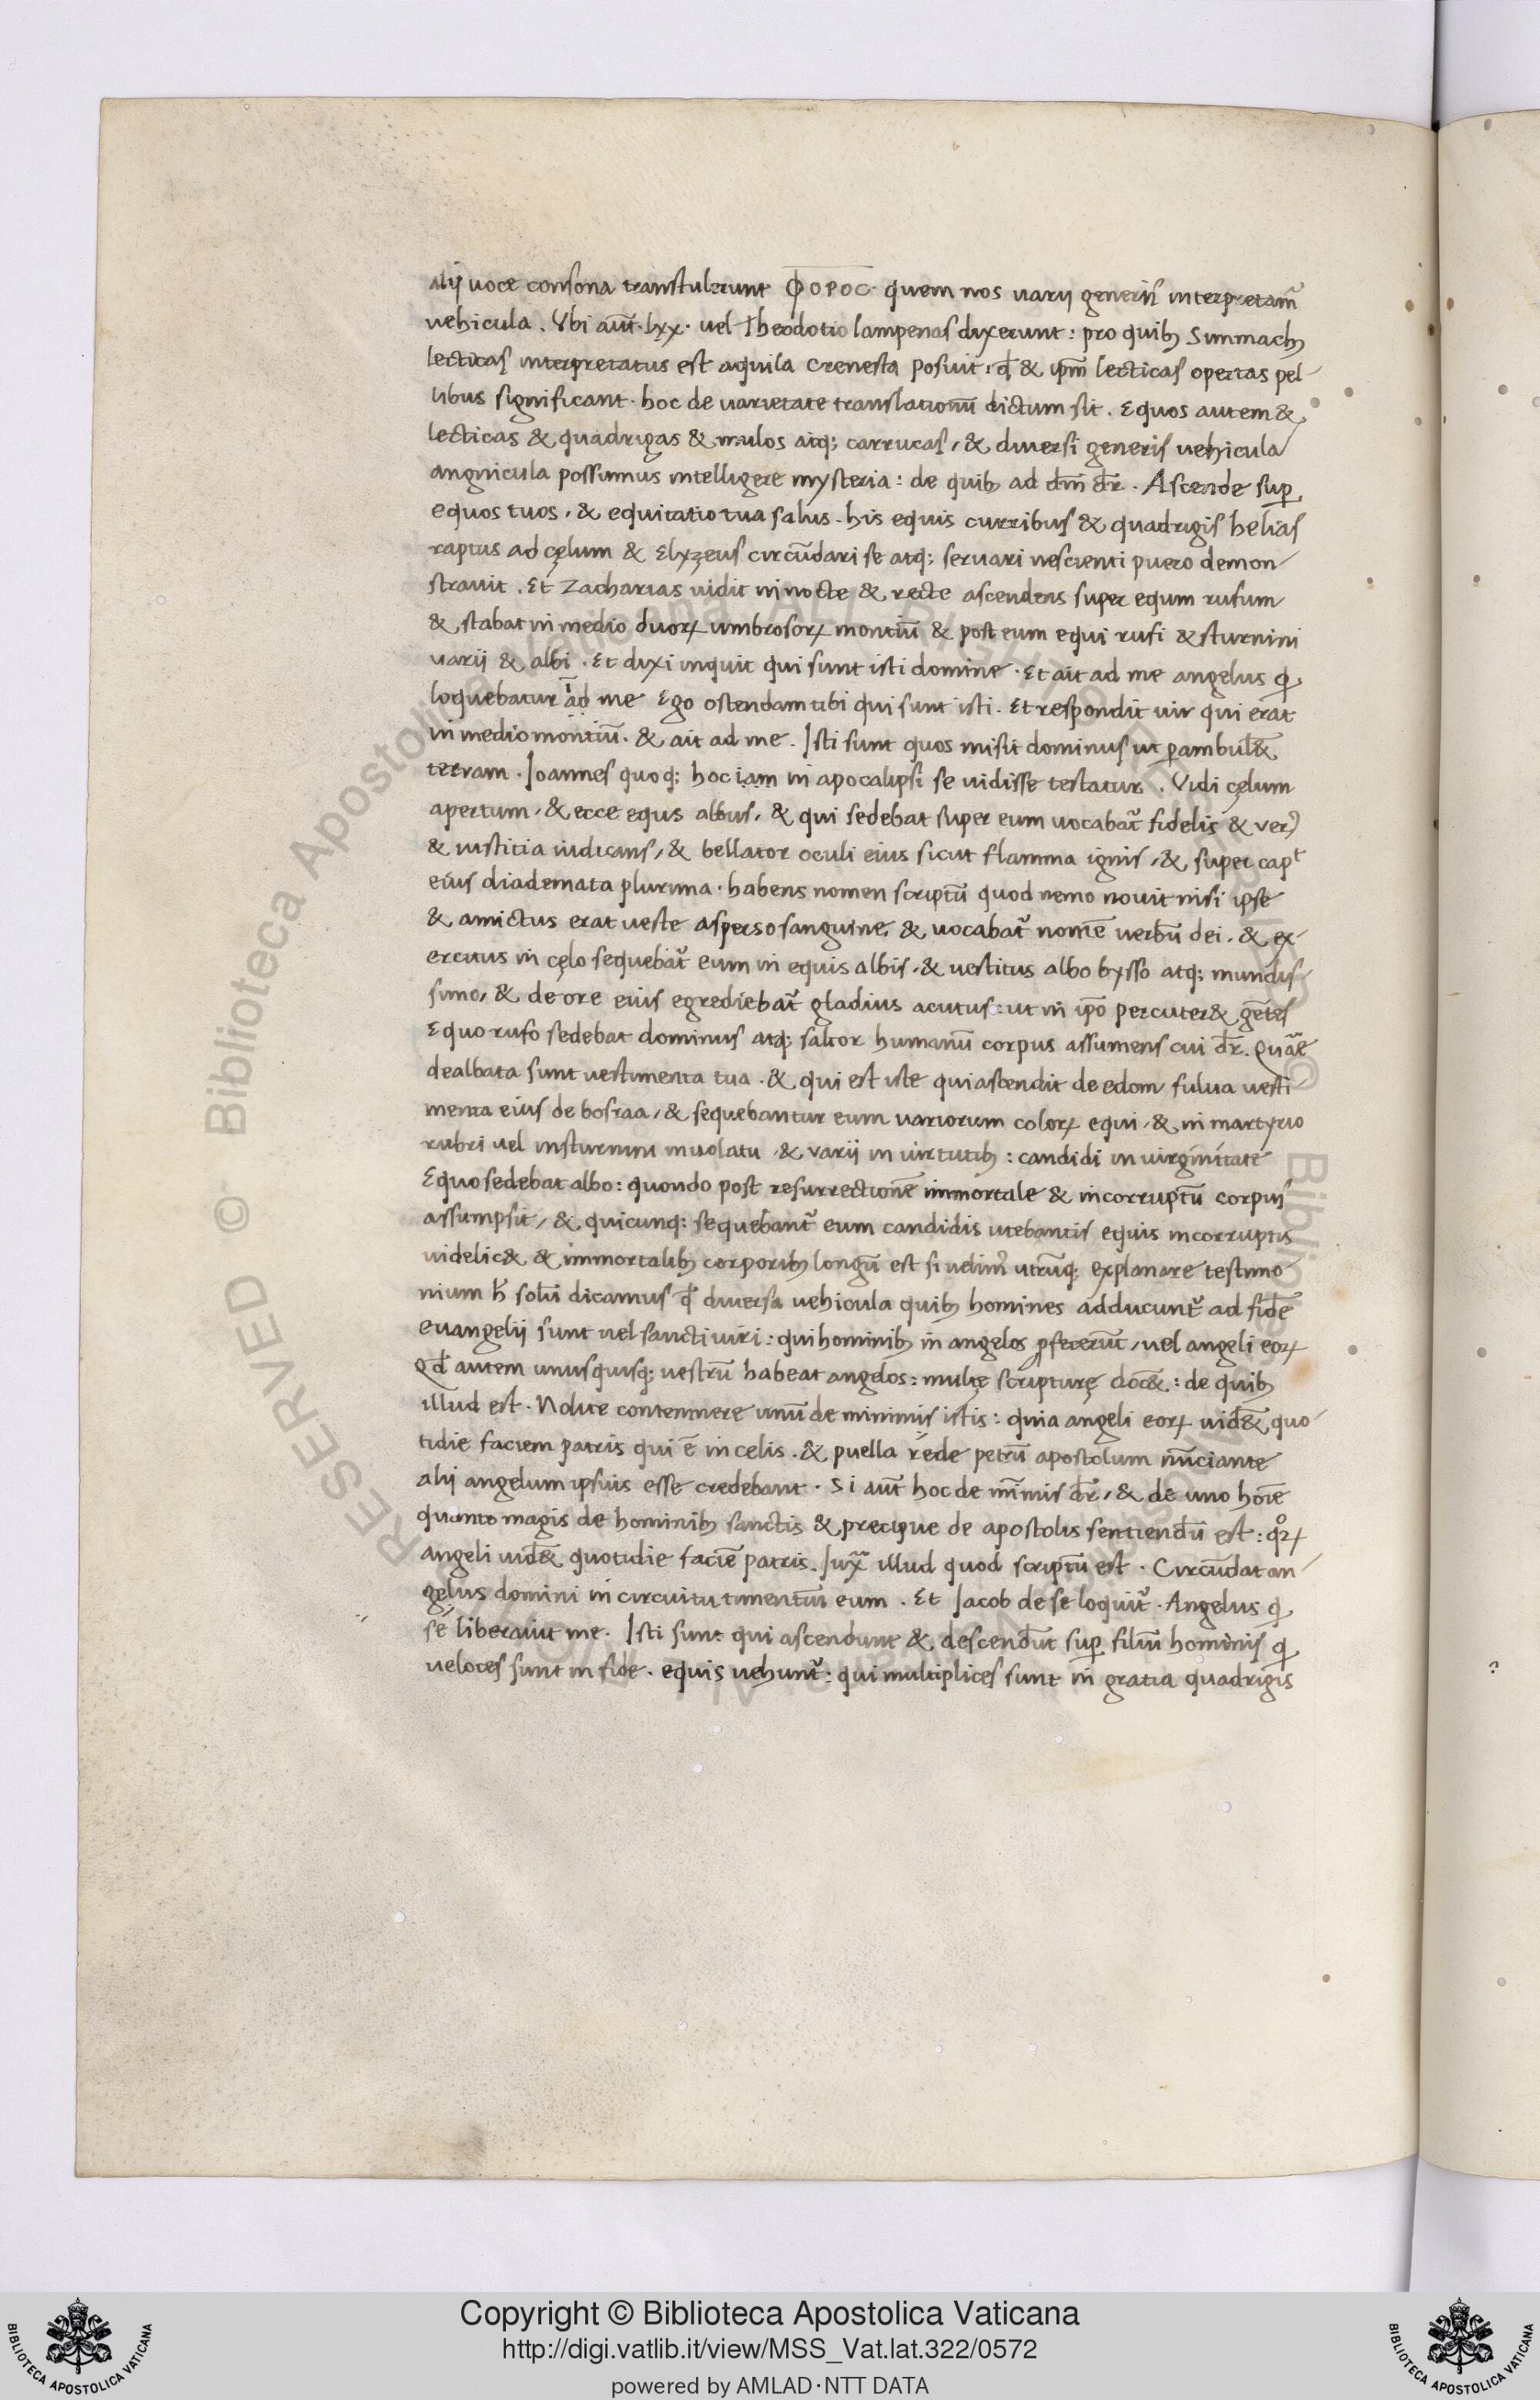 alij uoce consona transtulerunt ΦΟΡΟC· quem nos uarij generis̄ interpretam̃
uehicula. Vbi aut̃·lxx· uel Theodotio lampenas dixerunt: pro quib; Simmach;
lecticas interpretatus est aquila crenesta posuit: qđ & ip̃m lecticas opertas pel-
libus significant· hoc de uarietate translationũ dictum sit. Equos autem &
lecticas & quadrigas & mulos atq; carrucas, & diuersi generis uehicula
angnicula possumus intelligere mysteria: de quib; ad dm̃ dr̃. Ascende sup
equos tuos, & equitatio tua salus. his equis curribus & quadrigis helias
raptus ad cęlum & Elyzeus circũdari se atq; seruari nescienti puero demon-
strauit. Et Zacharias uidit in nocte & recte ascendens super equm rufum
& stabat in medio duoꝝ umbrosoꝝ montiũ & post eum equi rufi & sturnini
uarij & albi. Et dixi inquit qui sunt isti domine. Et ait ad me angelus q
loquebatur ĩ ad me Ego ostendam tibi qui sunt isti. Et respondit uir qui erat
in medio montiũ. & ait ad me. Isti sunt quos misit dominus ut ꝑambul&̃
terram. Ioannes quoq; hoc iam in apocalipsi se uidisse testatur. Vidi cęlum
apertum, & ecce equs albus, & qui sedebat super eum uocabat̃ fidelis & verꝰ
& iustitia iudicans, & bellator oculi eius sicut flamma ignis, & super capᵗ
eius diademata plurima· habens nomen scriptũ quod nemo nouit nisi ipse
& amictus erat ueste asperso sanguine, & uocabat̃ nomẽ uerbũ dei, & ex-
ercitus in cęlo sequebat̃ eum in equis albis, & uestitus albo bysso atq; mundis-
simo, & de ore eius egrediebat̃ gladius acutus: ut in ip̃o percuter& gẽtes
Equo rufo sedebat dominus atq; saltor humanũ corpus assumens cui dr̃. Quar̃e
dealbata sunt uestimenta tua. & qui est iste qui ascendit de edom fulua uesti-
menta eius de bosraa, & sequebantur eum uariorum coloꝝ equi, & in martyrio
rubri uel insturnini in uolatu, & varij in uirtutib;: candidi in uirginitate
Equo sedebat albo: quondo post resurrectionẽ immortale & incorruptũ corpus
assumpsit, & quicunq; sequebant̃ eum candidis utebantis equis incorruptis
uidelic& & immortalib; corporib; longũ est si uelim̃ utrũq; explanare testimo
nium h̃ solũ dicamus qđ diuersa uehicula quib; homines adducunt̃ ad fidẽ
euangelij sunt uel sancti uiri: qui hominib; in angelos ꝓfecerũt, uel angeli eoꝝ
Qđ autem unusquisq; uestrũ habeat angelos: multę scripturę doc&̃: de quib;
illud est. Nolite contemnere unũ de minimis istis: quia angeli eoꝝ uid&̃ quo-
tidie faciem patris qui ẽ in celis. & puella rede petrũ apostolum nũciante
alij angelum ipsius esse credebant. Si aut̃ hoc de mĩmis dr̃, & de uno hoĩe
quanto magis de hominib; sanctis & precipue de apostolis sentiendũ est: qͦꝝ
angeli uid&̃ quotidie faciẽ patris. Iux̃ illud quod scriptũ est. Circũdat an-
gelus domini in circuitu timentiũ eum. Et Iacob de se loquit̃. Angelus q
se liberauit me. Isti sunt qui ascendunt & descendũt sup filiũ hominis q
ueloces sunt in fide. equis uehunt̃: qui multiplices sunt in gratia quadrigis
Copyright © Biblioteca Apostolica Vaticana
http://digi.vatlib.it/view/MSS_Vat.lat.322/0572
powered by AMLAD·NTT DATA
BIBLIOTECA APOSTOLICA VATICANA
BIBLIOTECA APOSTOLICA VATICANA